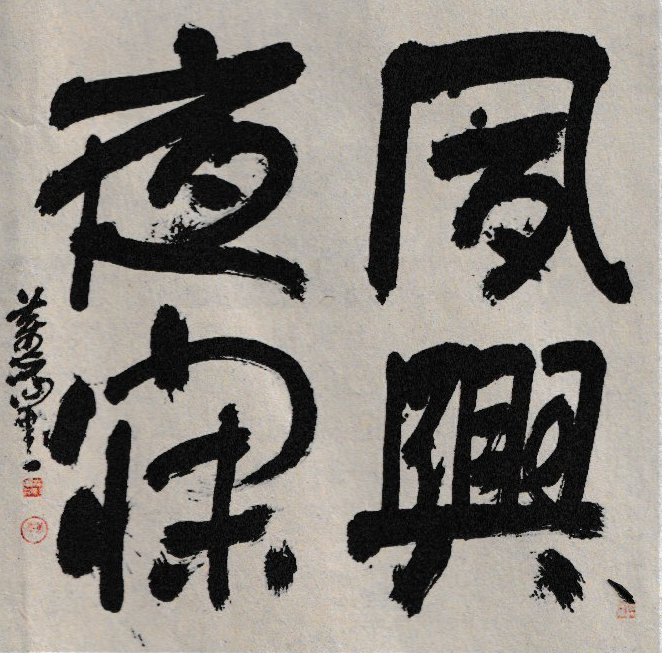 夙興
夜寐